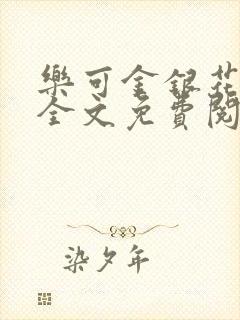 樂可金銀花
全文免費閱
染夕年